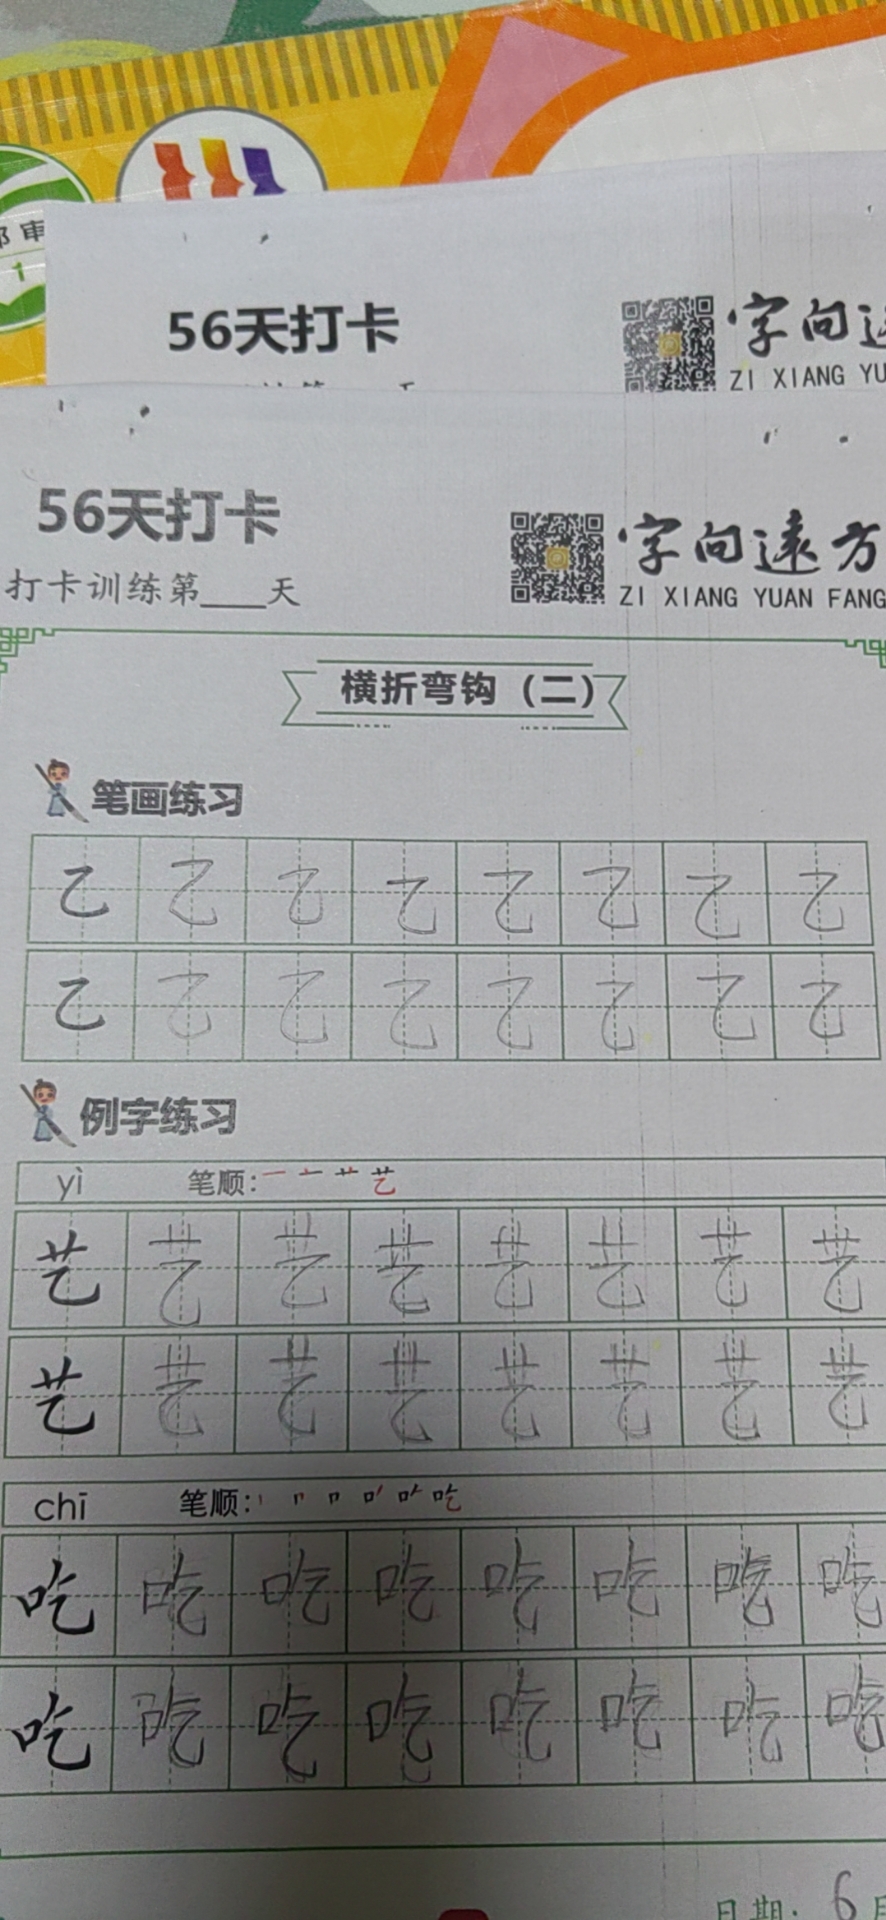 审
1
56天打卡
字向
ZI XIANG YU
56天打卡
字向遠方
打卡训练第___天
ZI XIANG YUAN FANG
横折弯钩（二）
笔画练习
乙 乙 乙 乙 乙 乙 乙 乙
乙 乙 乙 乙 乙 乙 乙 乙
例字练习
yì 笔顺: 一 艹 艺
艺 艺 艺 艺 艺 艺 艺 艺
艺 艺 艺 艺 艺 艺 艺 艺
chī 笔顺: 丨 口 吃
吃 吃 吃 吃 吃 吃 吃 吃
吃 吃 吃 吃 吃 吃 吃 吃
日期: 6月